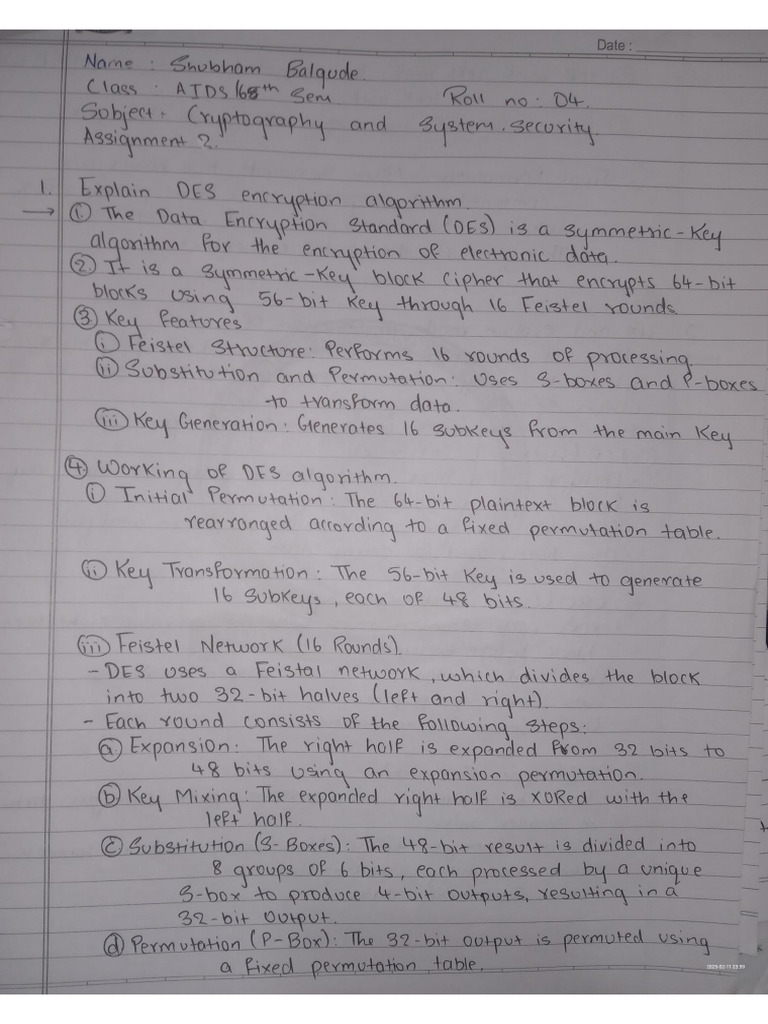 Date :
Name : Shubham Balgude.
Class : AIDS/68th Sem Roll no : 04.
Subject : Cryptography and System. Security.
Assignment 2.
1. Explain DES encryption algorithm.
→ ① The Data Encryption Standard (DES) is a symmetric-key
algorithm for the encryption of electronic data.
② It is a symmetric-key block cipher that encrypts 64-bit
blocks using 56-bit key through 16 Feistel rounds.
③ Key features
ⓘ Feistel Structure: Performs 16 rounds of processing
ⓘⓘ Substitution and Permutation: Uses S-boxes and P-boxes
to transform data.
ⓘⓘⓘ Key Generation: Generates 16 subkeys from the main key
④ Working of DES algorithm.
ⓘ Initial Permutation: The 64-bit plaintext block is
rearranged according to a fixed permutation table.
ⓘⓘ Key Transformation: The 56-bit key is used to generate
16 subkeys, each of 48 bits.
ⓘⓘⓘ Feistel Network (16 Rounds).
- DES uses a Feistal network, which divides the block
into two 32-bit halves (left and right).
- Each round consists of the following steps:
ⓐ Expansion: The right half is expanded from 32 bits to
48 bits using an expansion permutation.
ⓑ Key Mixing: The expanded right half is XORed with the
left half.
ⓒ Substitution (S-Boxes): The 48-bit result is divided into
8 groups of 6 bits, each processed by a unique
S-box to produce 4-bit outputs, resulting in a
32-bit output.
ⓓ Permutation (P-Box): The 32-bit output is permuted using
a fixed permutation table.